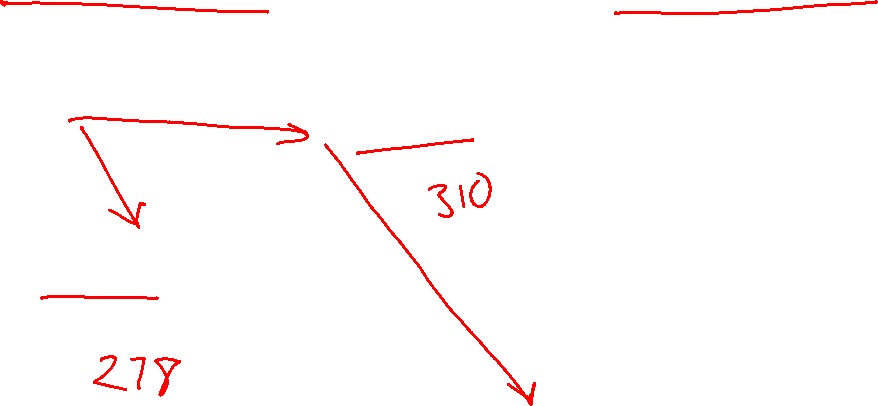 310
278